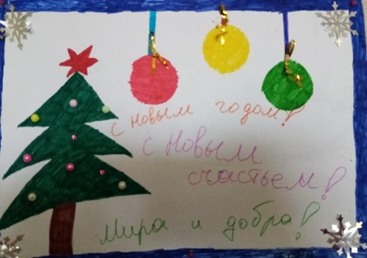 с новым годом!
с новым
счастьем!
Мира и добра!